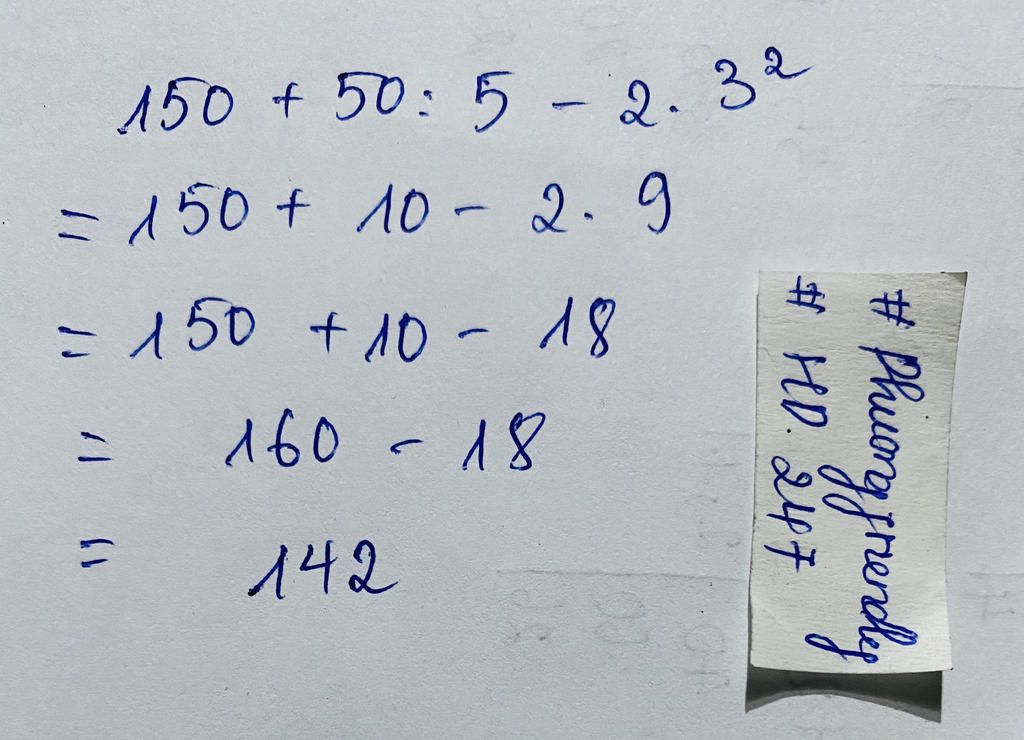 150 + 50 : 5 - 2. 3²
= 150 + 10 - 2. 9
= 150 + 10 - 18
= 160 - 18
= 142
# Phuongfriendly
# HD. 247